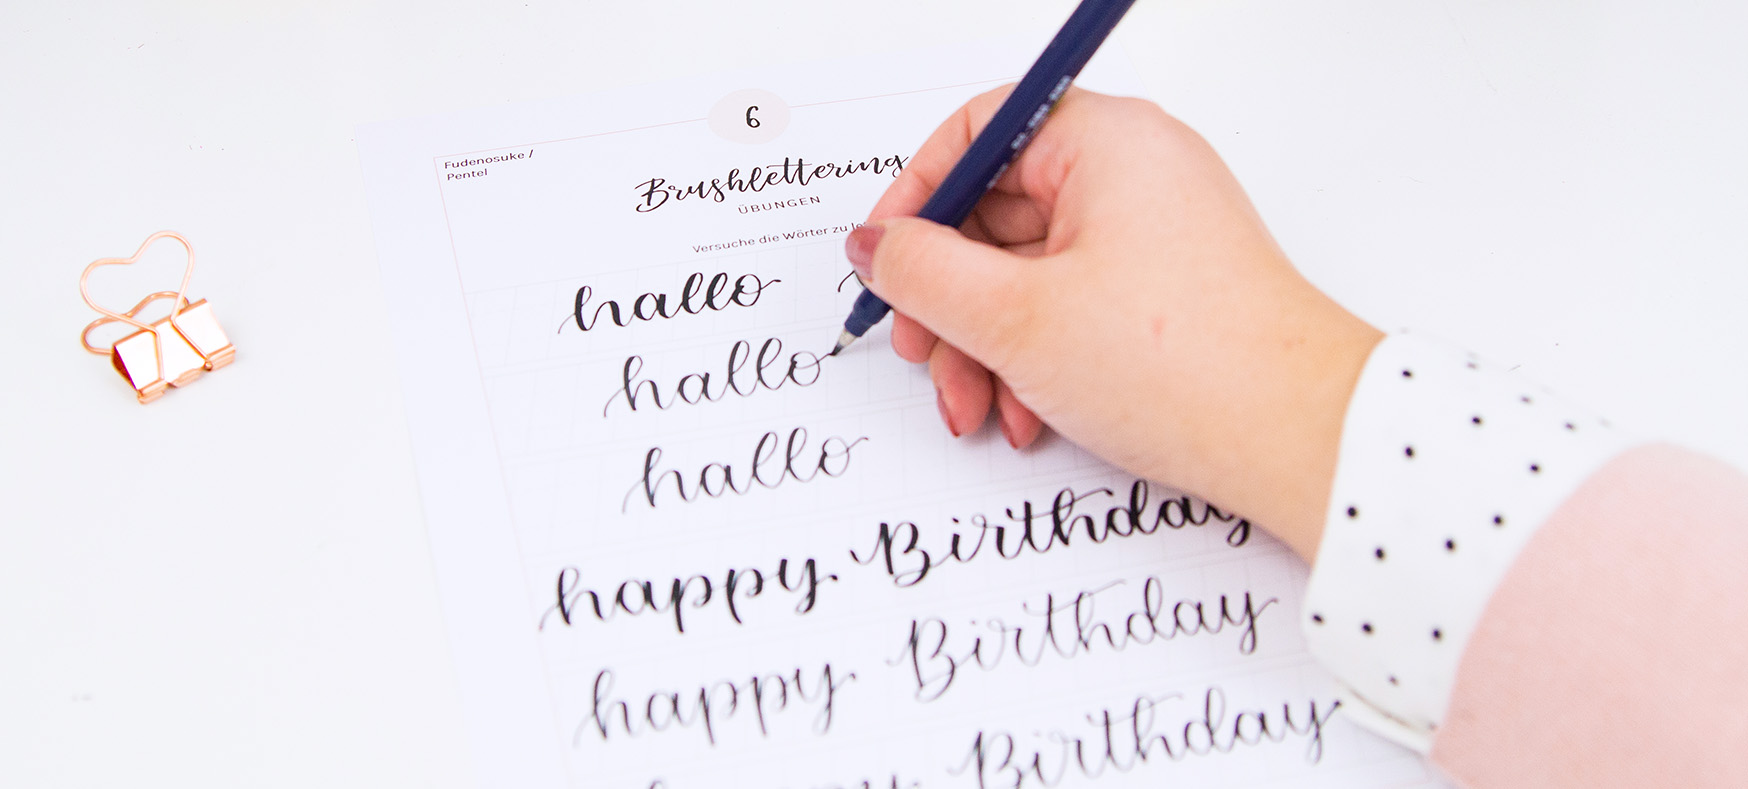 6
Fudenosuke /
Pentel
Brushlettering
ÜBUNGEN
Versuche die Wörter zu
hallo
hallo
hallo
happy Birthday
happy Birthday
Birthday